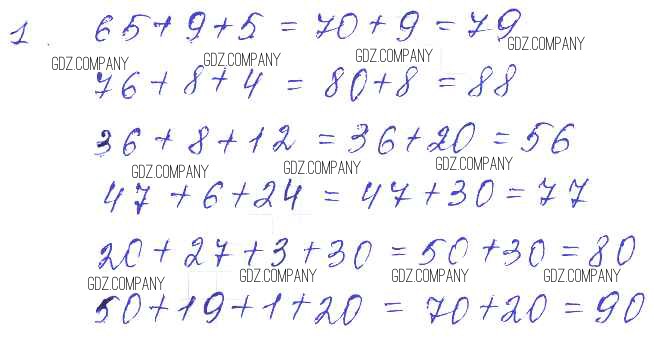 1. 65+9+5 = 70+9 = 79
GDZ.COMPANY GDZ.COMPANY GDZ.COMPANY GDZ.COMPANY
76+8+4 = 80+8 = 88
36+8+12 = 36+20 = 56
GDZ.COMPANY GDZ.COMPANY GDZ.COMPANY
47+6+24 = 47+30 = 77
20+27+3+30 = 50+30 = 80
GDZ.COMPANY GDZ.COMPANY GDZ.COMPANY GDZ.COMPANY
50+19+1+20 = 70+20 = 90